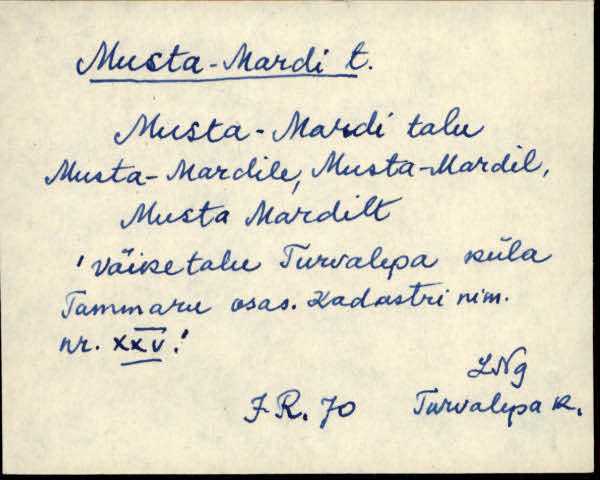 Musta-Mardi t.
Musta-Mardi talu
Musta-Mardile, Musta-Mardil,
Musta Mardilt
'väiketalu Turvalepa küla
Tammaru osas. Kadastri nim.
nr. XXV.'
LNg
J. R. 70 Turvalepa k.